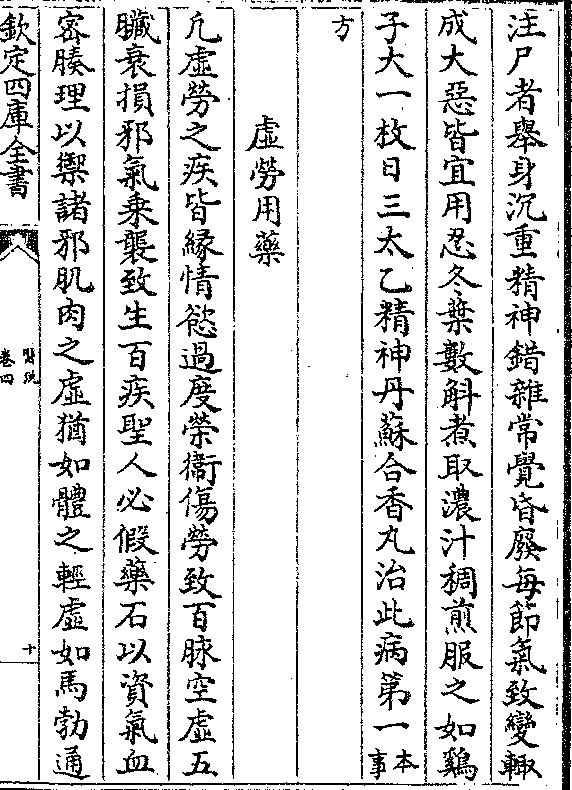 注尸者舉身沉重精神錯雜常覺昏廢每節氣致變輙
成大惡皆宜用忍冬葉數斛煮取濃汁稠煎服之如鷄
子大一枚日三太乙精神丹蘇合香丸治此病第一本事
方
虚勞用藥
凡虚勞之疾皆縁情慾過度榮衞傷勞致百脉空虚五
臟衰損邪氣乘襲致生百疾聖人必假藥石以資氣血
密腠理以禦諸邪肌肉之虚猶如體之輕虚如馬勃通
欽定四庫全書
醫説
卷四
十